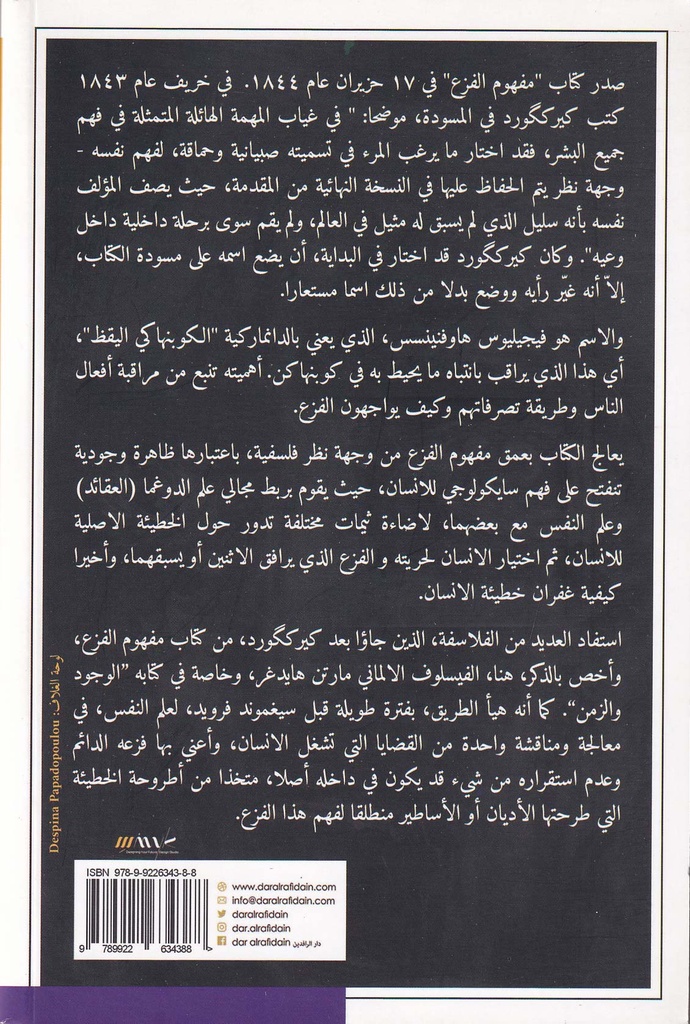 صدر كتاب "مفهوم الفزع" في ١٧ حزيران عام ١٨٤٤. في خريف عام ١٨٤٣
كتب كيرككورد في المسودة، موضحا: " في غياب المهمة الهائلة المتمثلة في فهم
جميع البشر، فقد اختار ما يرغب المرء في تسميته صبيانية وحماقة، لفهم نفسه -
وجهة نظر يتم الحفاظ عليها في النسخة النهائية من المقدمة، حيث يصف المؤلف
نفسه بأنه سليل الذي لم يسبق له مثيل في العالم، ولم يقم سوى برحلة داخلية داخل
وعيه". وكان كيرككورد قد اختار في البداية، أن يضع اسمه على مسودة الكتاب،
إلاّ أنه غيّر رأيه ووضع بدلا من ذلك اسما مستعارا.
والاسم هو فيجيليوس هاوفنينسس، الذي يعني بالدانماركية "الكوبنهاكي اليقظ"،
أي هذا الذي يراقب بانتباه ما يحيط به في كوبنهاكن. أهميته تنبع من مراقبة أفعال
الناس وطريقة تصرفاتهم وكيف يواجهون الفزع.
يعالج الكتاب بعمق مفهوم الفزع من وجهة نظر فلسفية، باعتبارها ظاهرة وجودية
تنفتح على فهم سايكولوجي للانسان، حيث يقوم بربط مجالي علم الدوغما (العقائد)
وعلم النفس مع بعضهما، لاضاءة ثيمات مختلفة تدور حول الخطيئة الاصلية
للانسان، ثم اختيار الانسان لحريته و الفزع الذي يرافق الاثنين أو يسبقهما، وأخيرا
كيفية غفران خطيئة الانسان.
استفاد العديد من الفلاسفة، الذين جاؤا بعد كيرككورد، من كتاب مفهوم الفزع،
وأخص بالذكر، هنا، الفيسلوف الالماني مارتن هايدغر، وخاصة في كتابه "الوجود
والزمن". كما أنه هيأ الطريق، بفترة طويلة قبل سيغموند فرويد، لعلم النفس، في
معالجة ومناقشة واحدة من القضايا التي تشغل الانسان، وأعني بها فزعه الدائم
وعدم استقراره من شيء قد يكون في داخله أصلا، متخذا من أطروحة الخطيئة
التي طرحتها الأديان أو الأساطير منطلقا لفهم هذا الفزع.
لوحة الغلاف: Despina Papadopoulou
ISBN 978-9-9226343-8-8
9 789922 634388
www.daralrafidain.com
info@daralrafidain.com
daralrafidain
dar.alrafidain
dar alrafidain دار الرافدين